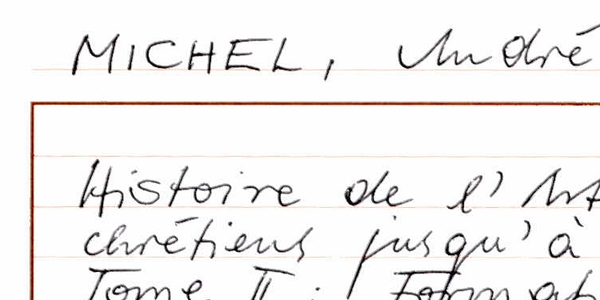 MICHEL, André
Histoire de l'Art
chrétiens jusqu'à
Tome II : Format